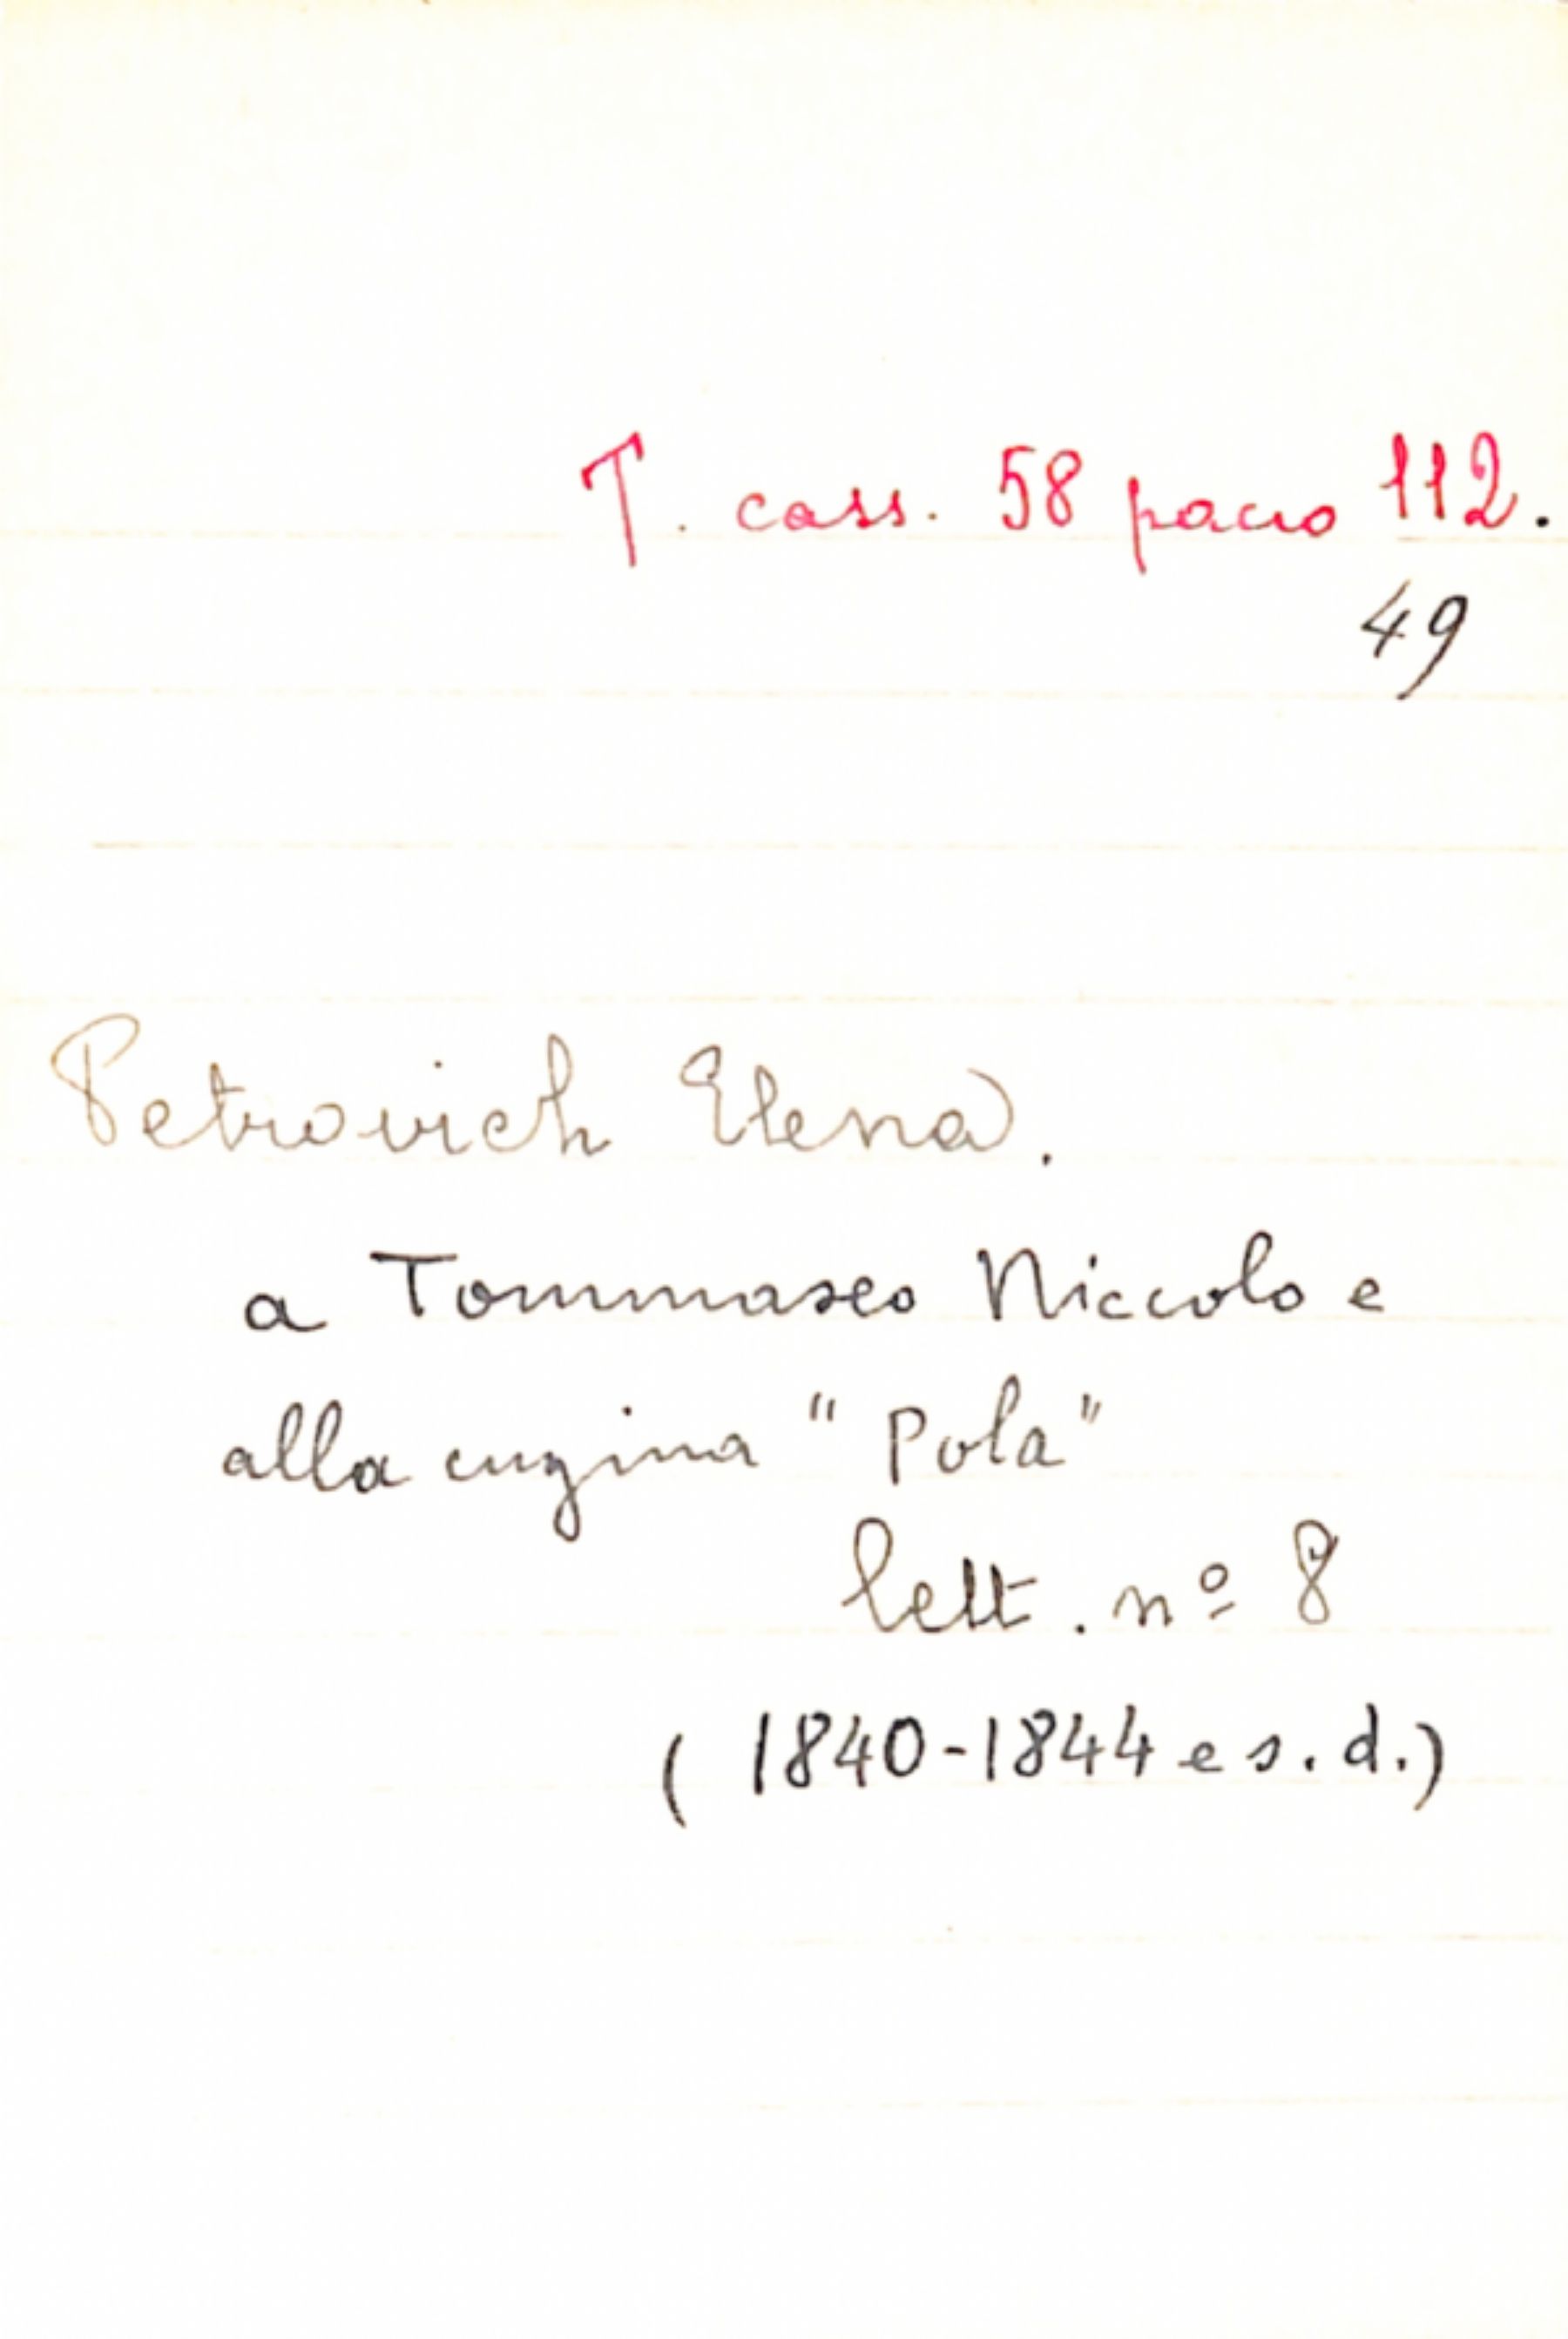 T. cass. 58 pacco 112.
49
Petrovich Elena.
a Tommaseo Niccolo e
alla cugina "Pola"
lett. nº 8
(1840-1844 e s.d.)